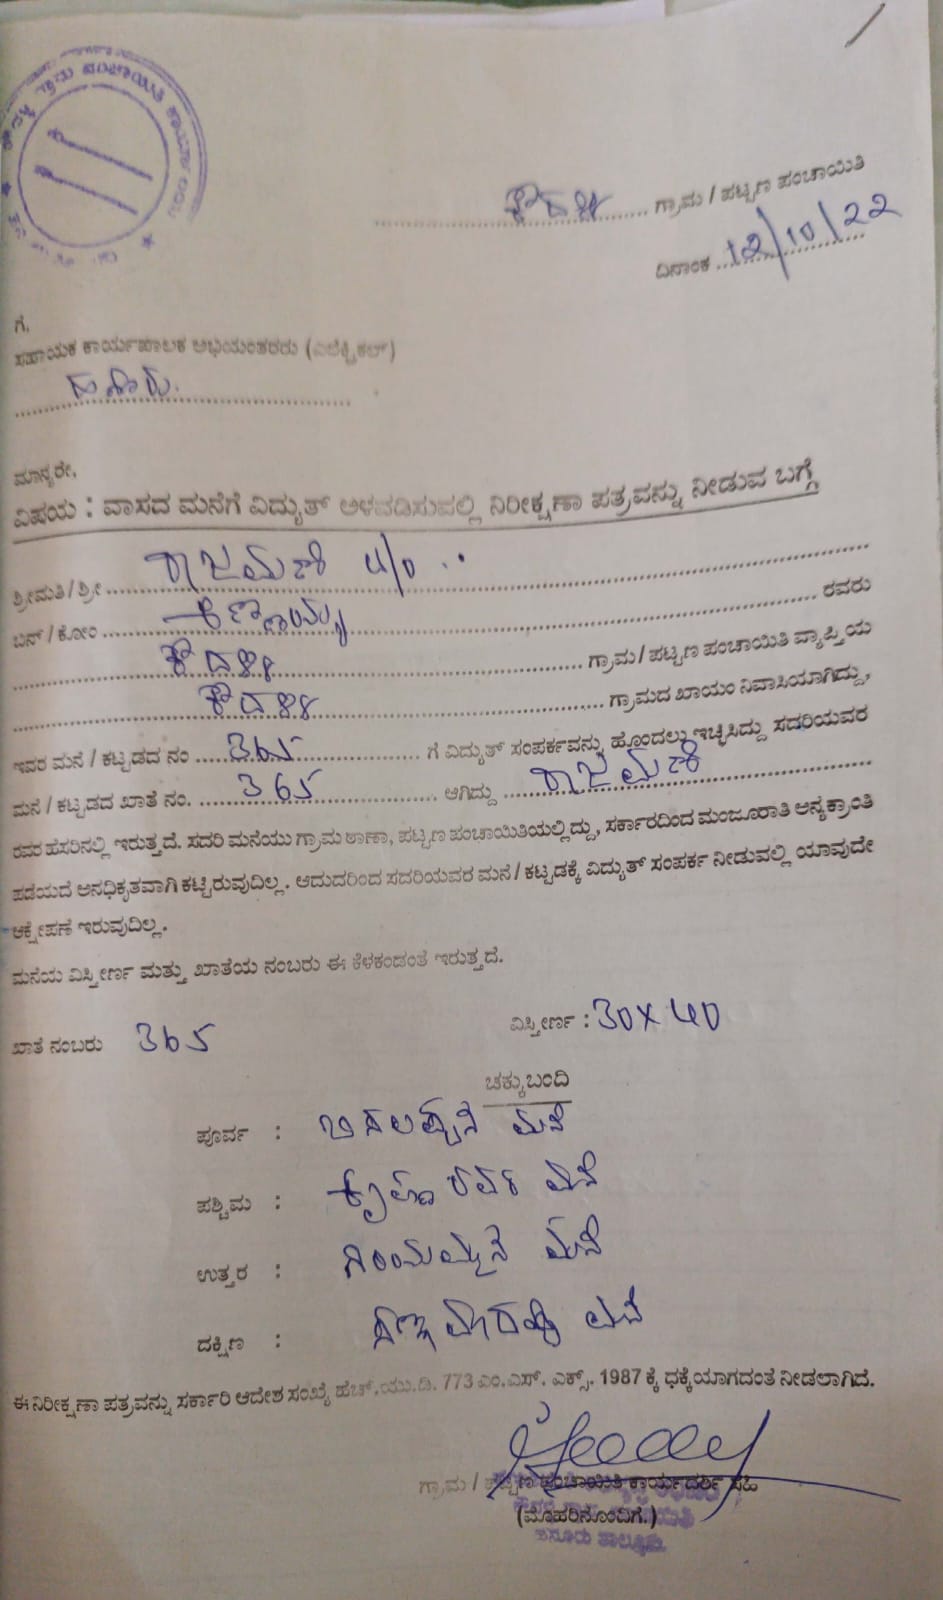 ಗ್ರಾಮ ಪಂಚಾಯಿತಿ ಕಾರ್ಯಾಲಯ
ಕೌದಳ್ಳಿ ಗ್ರಾಮ / ಪಟ್ಟಣ ಪಂಚಾಯಿತಿ
ದಿನಾಂಕ 12/10/22
ಗೆ,
ಸಹಾಯಕ ಕಾರ್ಯಪಾಲಕ ಅಭಿಯಂತರರು (ಎಲೆಕ್ಟ್ರಿಕಲ್)
ಹನೂರು.
ಮಾನ್ಯರೇ,
ವಿಷಯ : ವಾಸದ ಮನೆಗೆ ವಿದ್ಯುತ್ ಅಳವಡಿಸುವಲ್ಲಿ ನಿರೀಕ್ಷಣಾ ಪತ್ರವನ್ನು ನೀಡುವ ಬಗ್ಗೆ
ಶ್ರೀಮತಿ / ಶ್ರೀ ರಾಜಮಣಿ
ಬಿನ್ / ಕೋಂ ರವರು
ಕೌದಳ್ಳಿ ಗ್ರಾಮ / ಪಟ್ಟಣ ಪಂಚಾಯಿತಿ ವ್ಯಾಪ್ತಿಯ
ಕೌದಳ್ಳಿ ಗ್ರಾಮದ ಖಾಯಂ ನಿವಾಸಿಯಾಗಿದ್ದು,
ಇವರ ಮನೆ / ಕಟ್ಟಡದ ನಂ 365 ಗೆ ವಿದ್ಯುತ್ ಸಂಪರ್ಕವನ್ನು ಹೊಂದಲು ಇಚ್ಛಿಸಿದ್ದು ಸದರಿಯವರ
ಮನೆ / ಕಟ್ಟಡದ ಖಾತೆ ನಂ. 365 ಆಗಿದ್ದು ರಾಜಮಣಿ
ರವರ ಹೆಸರಿನಲ್ಲಿ ಇರುತ್ತದೆ. ಸದರಿ ಮನೆಯು ಗ್ರಾಮ ಠಾಣಾ, ಪಟ್ಟಣ ಪಂಚಾಯಿತಿಯಲ್ಲಿದ್ದು, ಸರ್ಕಾರದಿಂದ ಮಂಜೂರಾತಿ ಅನ್ಯಕ್ರಾಂತಿ
ಪಡೆಯದೆ ಅನಧಿಕೃತವಾಗಿ ಕಟ್ಟಿರುವುದಿಲ್ಲ. ಆದುದರಿಂದ ಸದರಿಯವರ ಮನೆ / ಕಟ್ಟಡಕ್ಕೆ ವಿದ್ಯುತ್ ಸಂಪರ್ಕ ನೀಡುವಲ್ಲಿ ಯಾವುದೇ
ಆಕ್ಷೇಪಣೆ ಇರುವುದಿಲ್ಲ.
ಮನೆಯ ವಿಸ್ತೀರ್ಣ ಮತ್ತು ಖಾತೆಯ ನಂಬರು ಈ ಕೆಳಕಂಡಂತೆ ಇರುತ್ತದೆ.
ಖಾತೆ ನಂಬರು 365 ವಿಸ್ತೀರ್ಣ : 30 x 40
ಚಕ್ಕುಬಂದಿ
ಪೂರ್ವ : ಮನೆ
ಪಶ್ಚಿಮ : ರವರ ಮನೆ
ಉತ್ತರ : ಮನೆ
ದಕ್ಷಿಣ : ಮನೆ
ಈ ನಿರೀಕ್ಷಣಾ ಪತ್ರವನ್ನು ಸರ್ಕಾರಿ ಆದೇಶ ಸಂಖ್ಯೆ ಹೆಚ್.ಯು.ಡಿ. 773 ಎಂ.ಎಸ್. ಎಕ್ಸ್. 1987 ಕ್ಕೆ ಧಕ್ಕೆಯಾಗದಂತೆ ನೀಡಲಾಗಿದೆ.
ಗ್ರಾಮ / ಪಟ್ಟಣ ಪಂಚಾಯಿತಿ ಕಾರ್ಯದರ್ಶಿ ಸಹಿ
(ಮೊಹರಿನೊಂದಿಗೆ.)
ಹನೂರು ತಾಲ್ಲೂಕು.